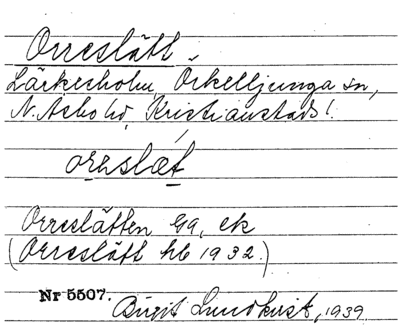 Orreslätt
Lärkesholm, Örkelljunga sn,
N. Åsbo hd, Kristianstads l.
oreslæt
Orreslätten Ga, ek
(Orreslätt hb 1932.)
Nr 5507.
Birgit Lundkvist, 1939.